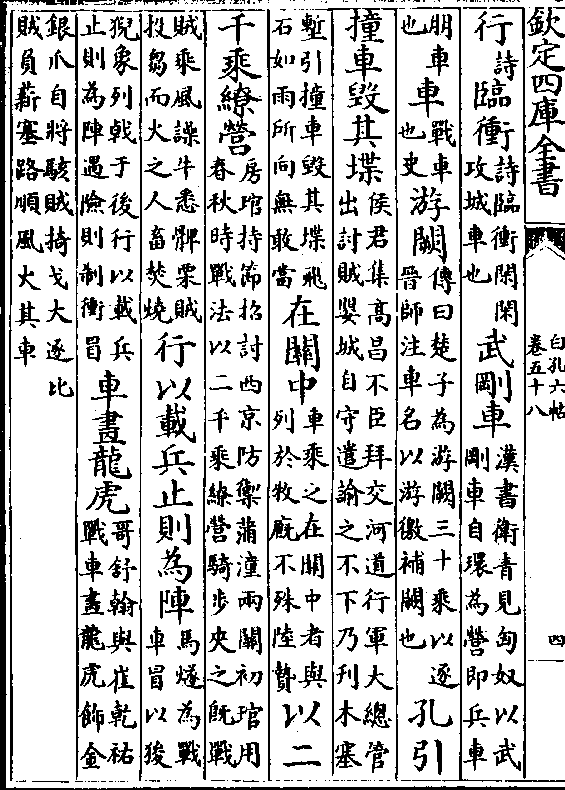 欽定四庫全書
白孔六帖
卷五十八
四
行詩臨衝詩臨衝閑閑攻城車也武剛車漢書衛青見匈奴以武剛車自環為營即兵車
朋車也車戰車也史游闕傳曰楚子為游闕三十乘以逐晉師注車名以游徼補闕也孔引
撞車毀其堞侯君集高昌不臣拜交河道行軍大總管出討賊嬰城自守遣諭之不下乃刋木塞
塹引撞車毀其堞飛石如雨所向無敢當在關中車乘之在關中者與列於牧廐不殊陸贄以二
千乘繚營房琯持節招討西京防禦蒲潼兩關初琯用春秋時戰法以二千乘繚營騎步夾之既戰
賊乘風譟牛悉髀栗賊投芻而火之人畜焚燒行以載兵止則為陣馬燧為戰車冒以狻
猊象列戟于後行以載兵止則為陣遇險則制衝冒車畫龍虎哥舒翰與崔乾祐戰車畫龍虎飾金
銀爪自將駭賊掎戈大逐比賊負薪塞路順風火其車